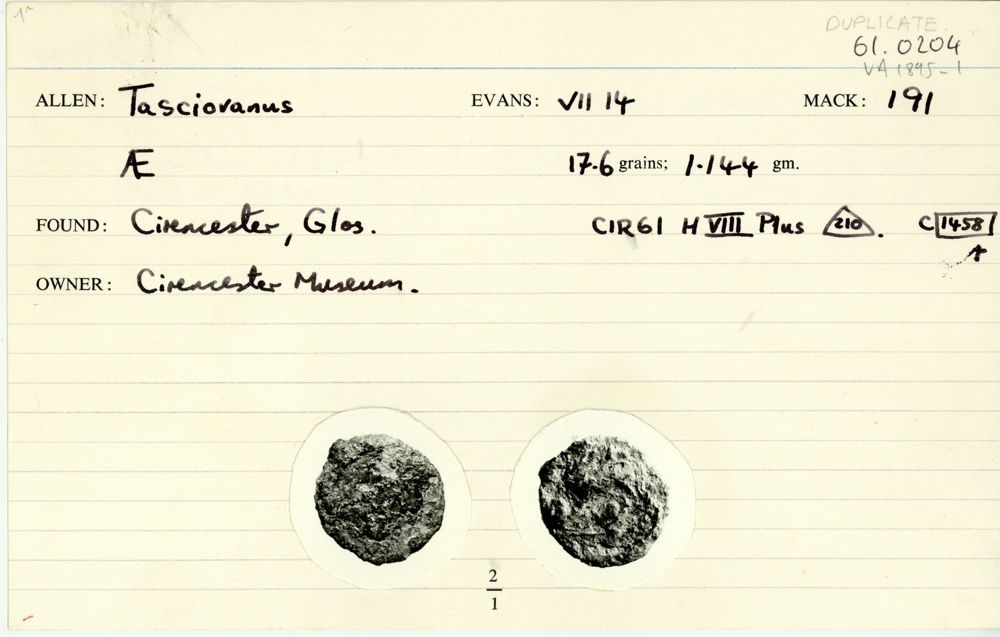 DUPLICATE.
61.0204
VA 1895-1
ALLEN: Tasciovanus EVANS: VII 14 MACK: 191
Æ 17.6 grains; 1.144 gm.
FOUND: Cirencester, Glos. CIR61 H VIII Plus 210. C 1458
OWNER: Cirencester Museum.
2
1